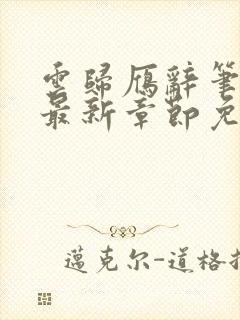 雲歸雁辭筆
最新章節免
邁克尔-道格拉